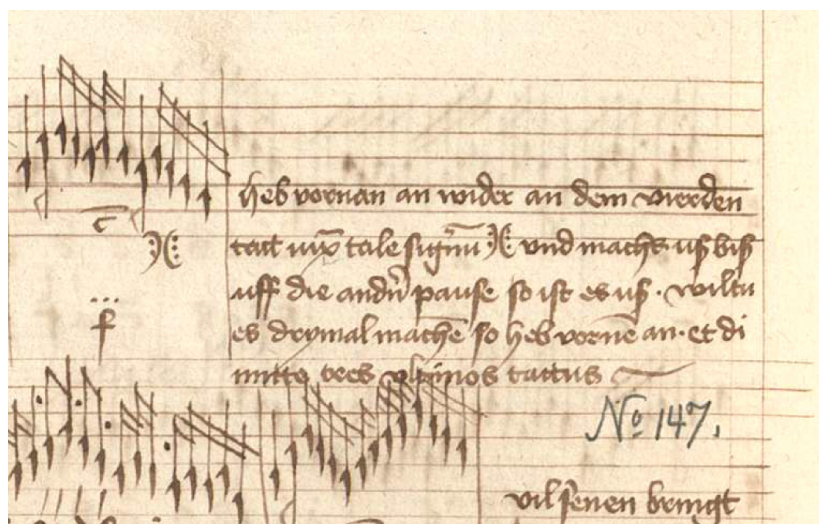 heb vornan an wider an dem vierden
tact iuxͣ tale signū )( und machs uß biß
uff die andn̄ pause so ist es uß. wiltu
es drymal machē so heb vornē an. et di
mitte tres ultimos tactus
No 147.
vil senen bringt